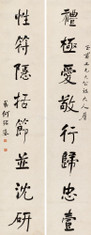 禮極愛敬行歸忠壹
性符隱括節並沈研
何紹基